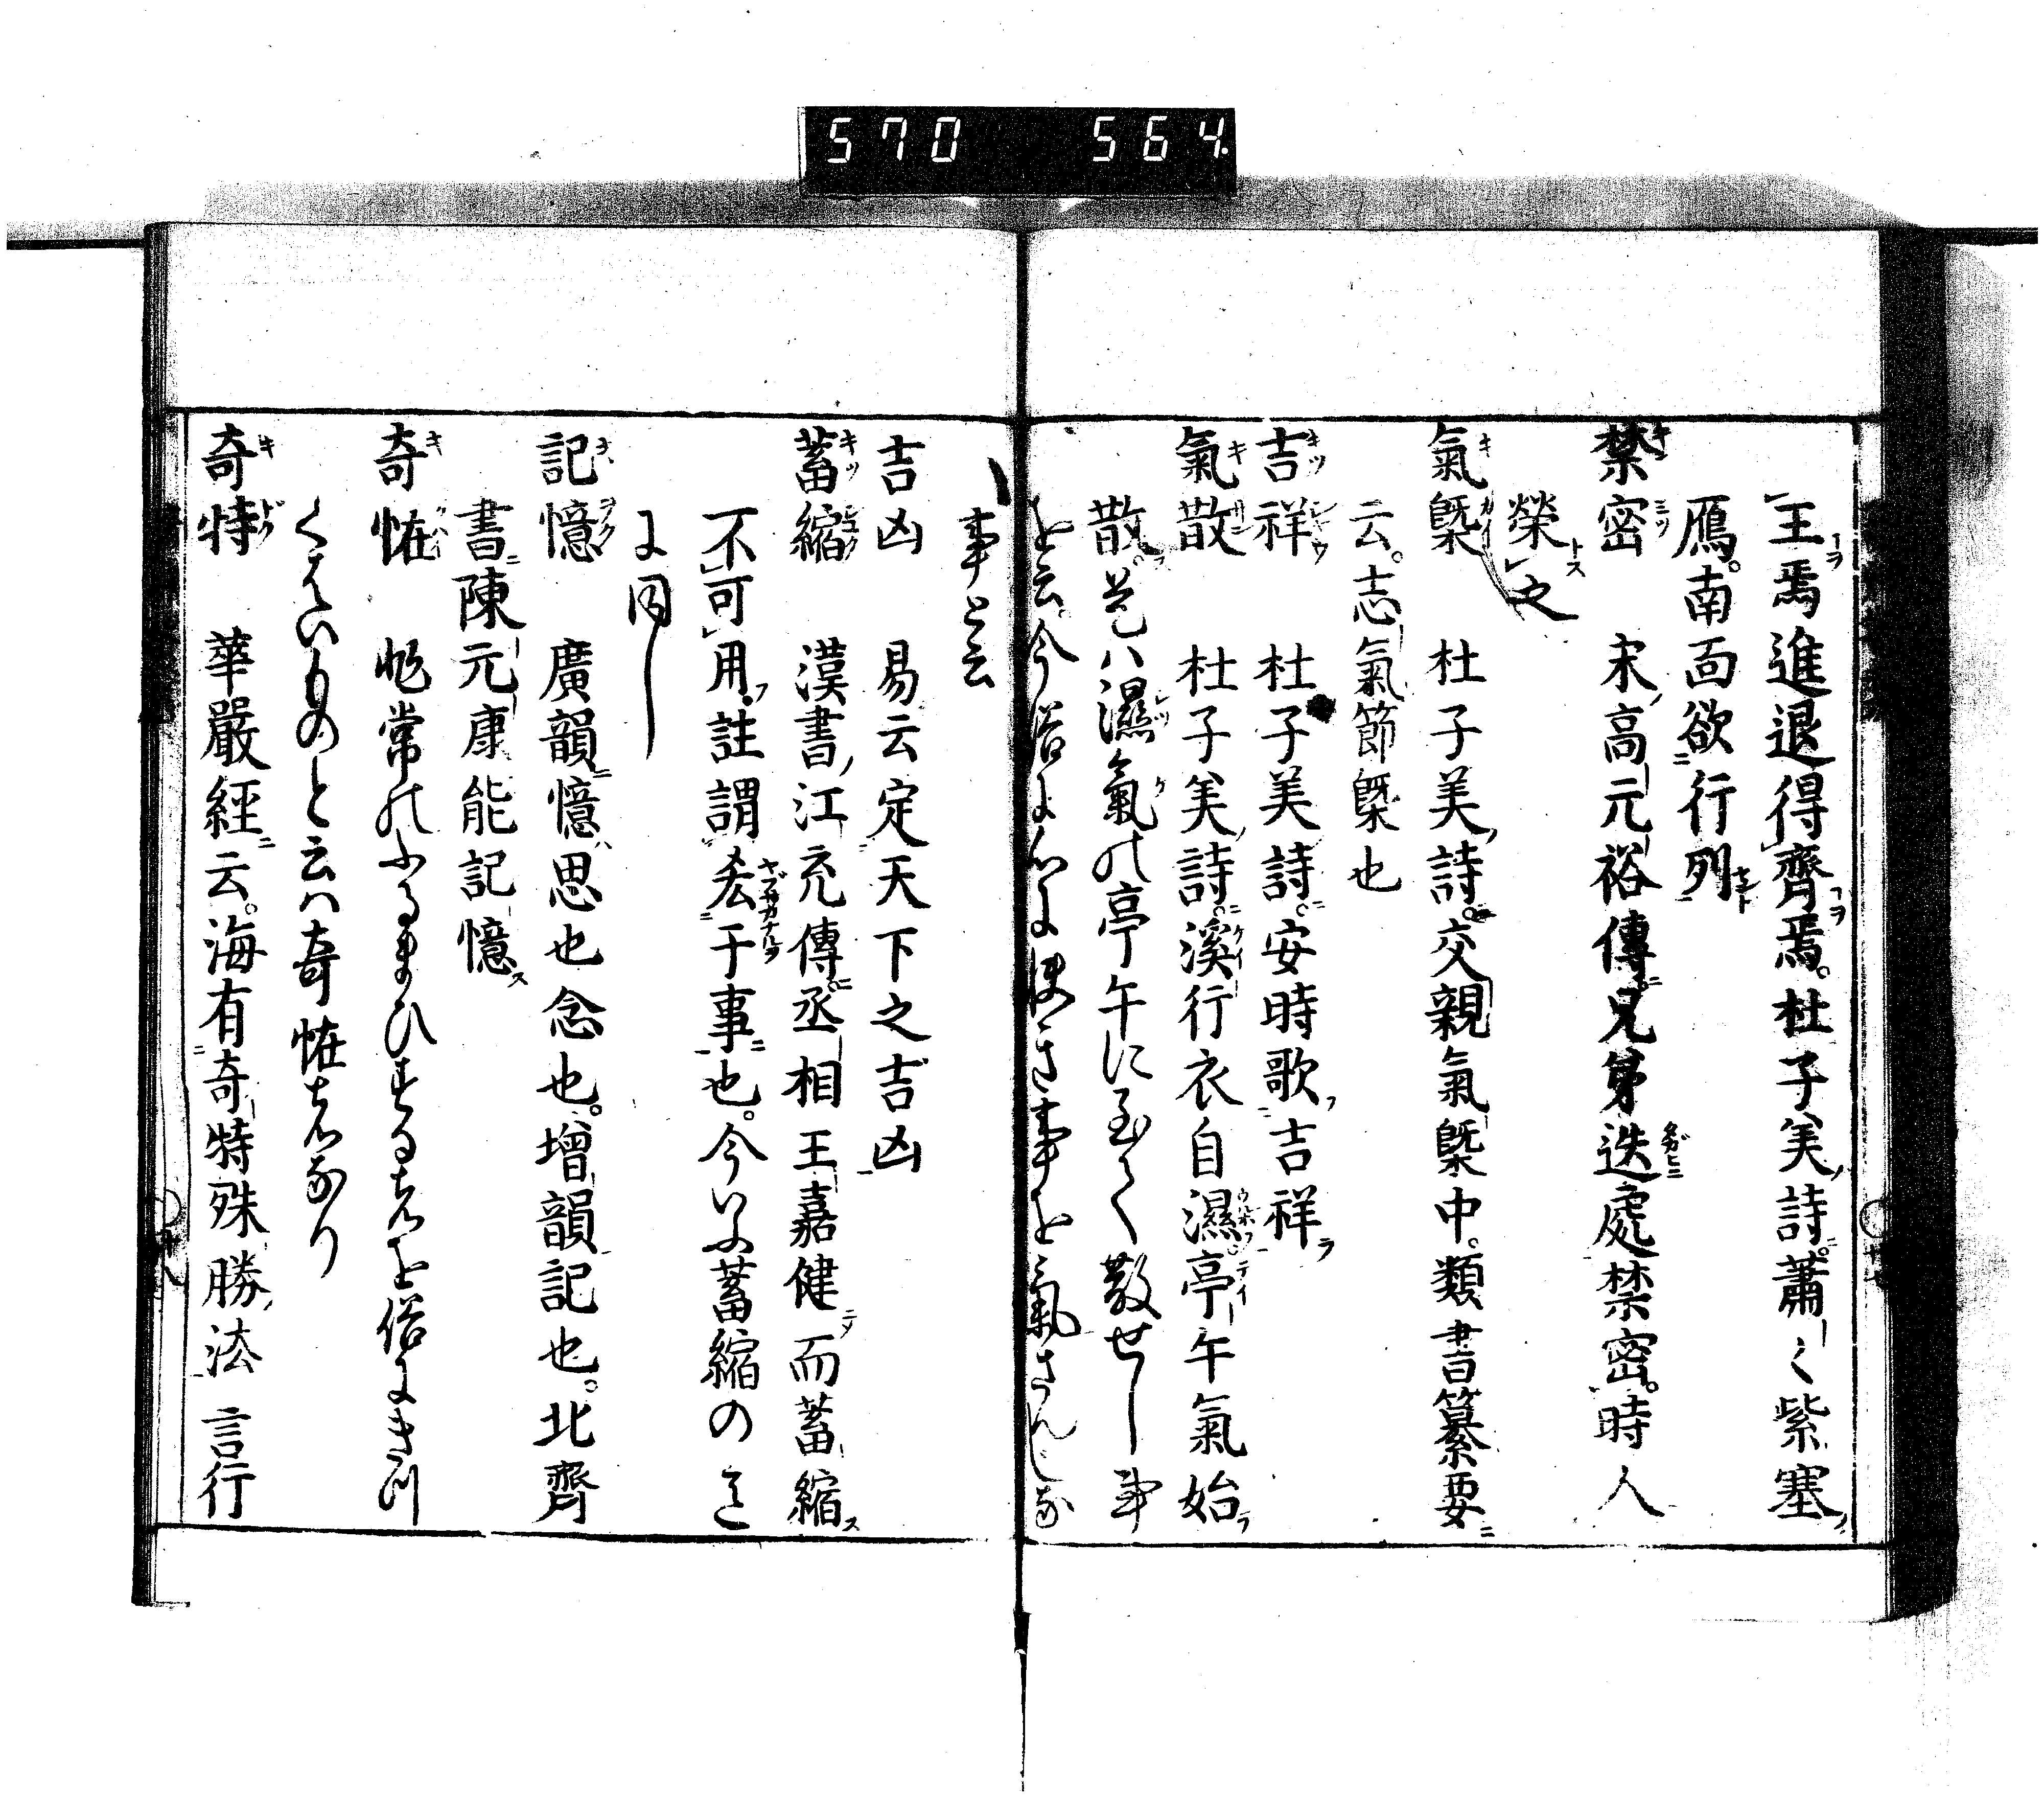 570 564
王焉進退得齊焉。杜子美詩。蕭〱紫塞
鴈。南面欲行列
禁密 宋高元裕傳。兄弟迭處禁密。時人
榮之
氣槩 杜子美詩。交親氣槩中。類書纂要
云。志氣節槩也
吉祥 杜子美詩。安時歌吉祥
氣散 杜子美詩。溪行衣自濕亭午氣始
散。是ハ濕氣の亭午に至て散せし事
を云今俗に心よ快き事を氣さんじな
事と云
吉凶 易云定天下之吉凶
蓄縮 漢書江充傳。丞相王嘉健而蓄縮
不可用。註謂吝于事也。今いふ蓄縮の
に同し
記憶 廣韻憶思也念也。增韻記也。北齊
書陳元康能記憶
奇恠 非常のふるまひする者を俗にき
くはいものと云ハ奇恠者なり
奇特 華嚴經云。海有奇特殊勝法 言行